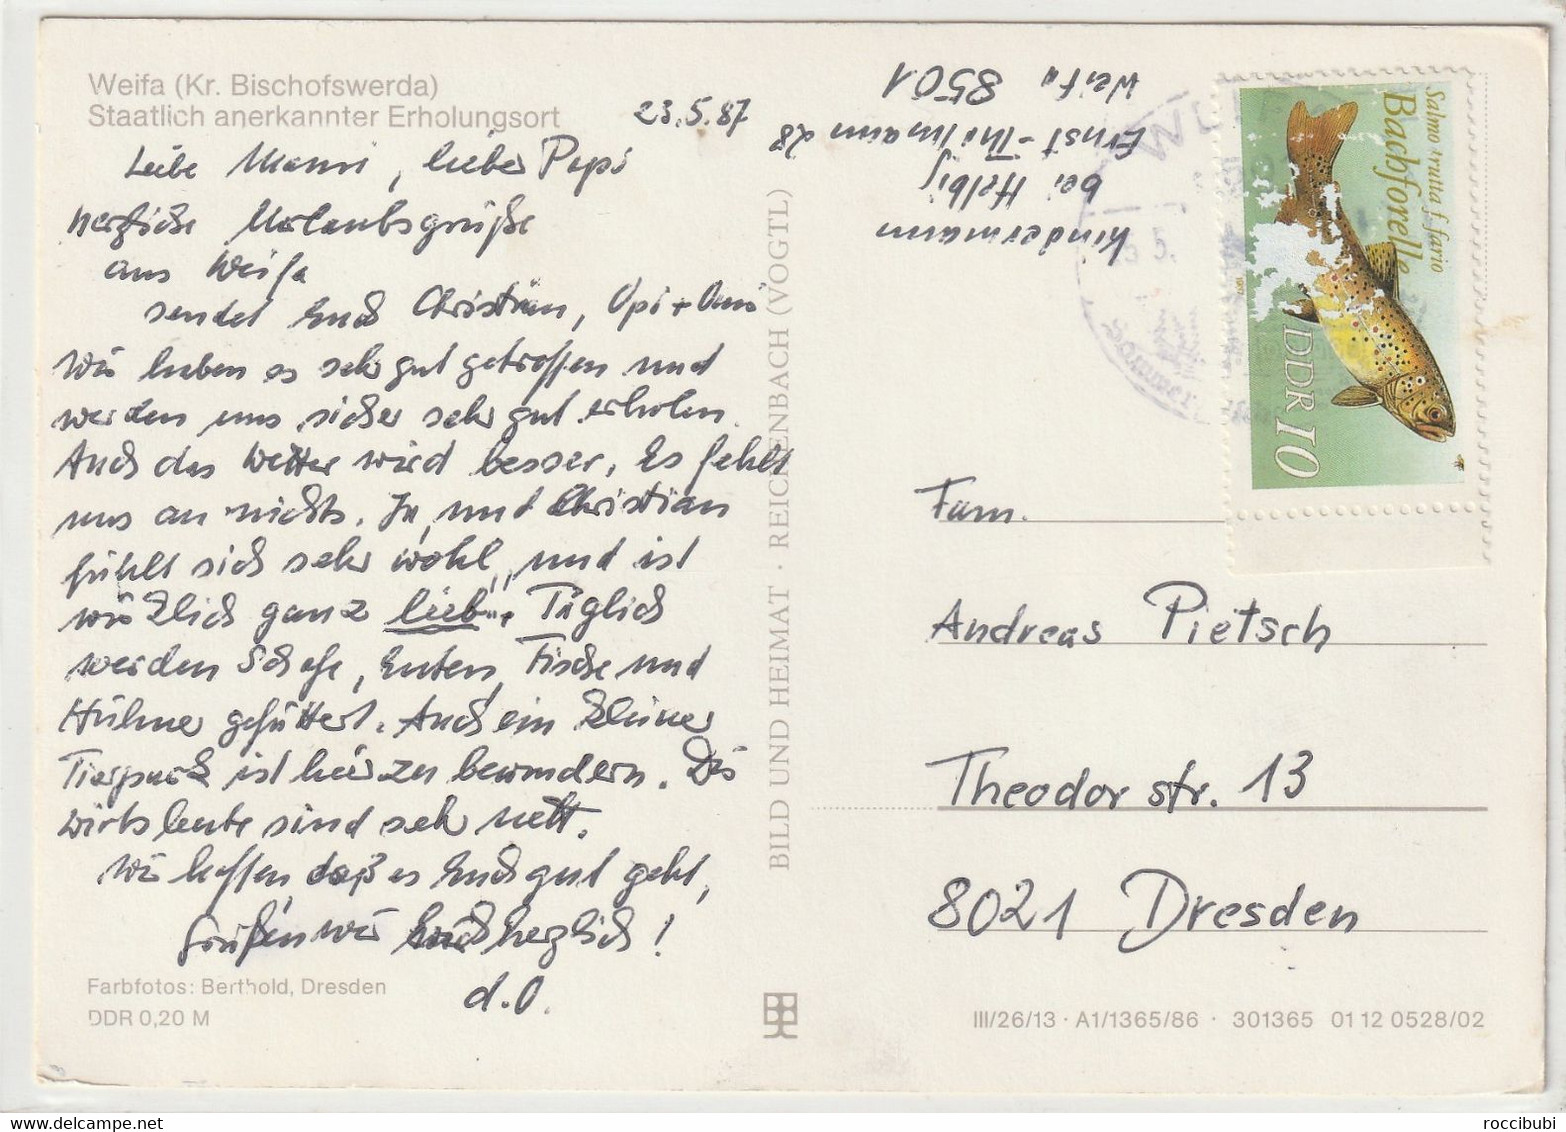 Weifa (Kr. Bischofswerda)
Staatlich anerkannter Erholungsort
23.5.87
Liebe Mami, lieber Papi
herzliche Urlaubsgrüße
aus Weifa
sendet Euch Christian, Opi + Omi
Wir haben es sehr gut getroffen und
werden uns sicher sehr gut erholen.
Auch das Wetter wird besser. Es fehlt
uns an nichts. Ja, und Christian
fühlt sich sehr wohl, und ist
wirklich ganz lieb. Täglich
werden Schafe, Enten, Fische und
Hühner gefüttert. Auch ein kleiner
Tierpark ist hier zu bewundern. Die
Wirtsleute sind sehr nett.
Wir hoffen daß es Euch gut geht,
Grüßen wir Euch herzlich!
d.O.
Farbfotos: Berthold, Dresden
DDR 0,20 M
BILD UND HEIMAT · REICHENBACH (VOGTL)
Kindermann
bei Helbig
Ernst-Thälmann 28
Weifa 8501
Salmo trutta f. fario
Bachforelle
DDR 10
Fam.
Andreas Pietsch
Theodor str. 13
8021 Dresden
III/26/13 · A1/1365/86 · 301365 01 12 0528/02
roccibubi